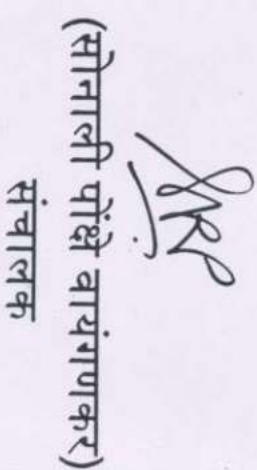 (सोनाली पोंक्षे वायंगणकर)
संचालक